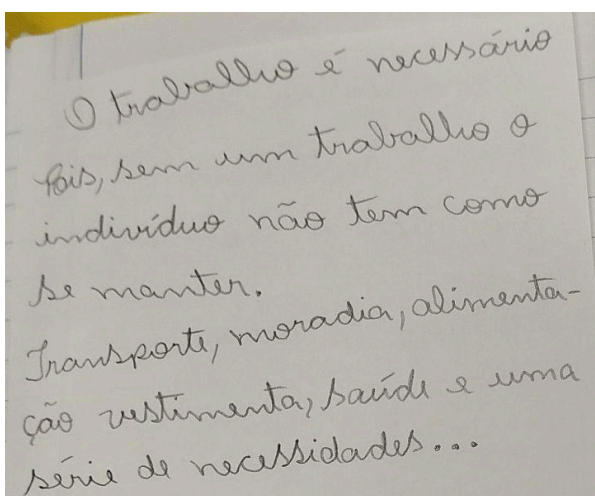 O trabalho é necessário
pois, sem um trabalho o
indivíduo não tem como
se manter.
Transporte, moradia, alimenta-
ção vestimenta, saúde e uma
série de necessidades...